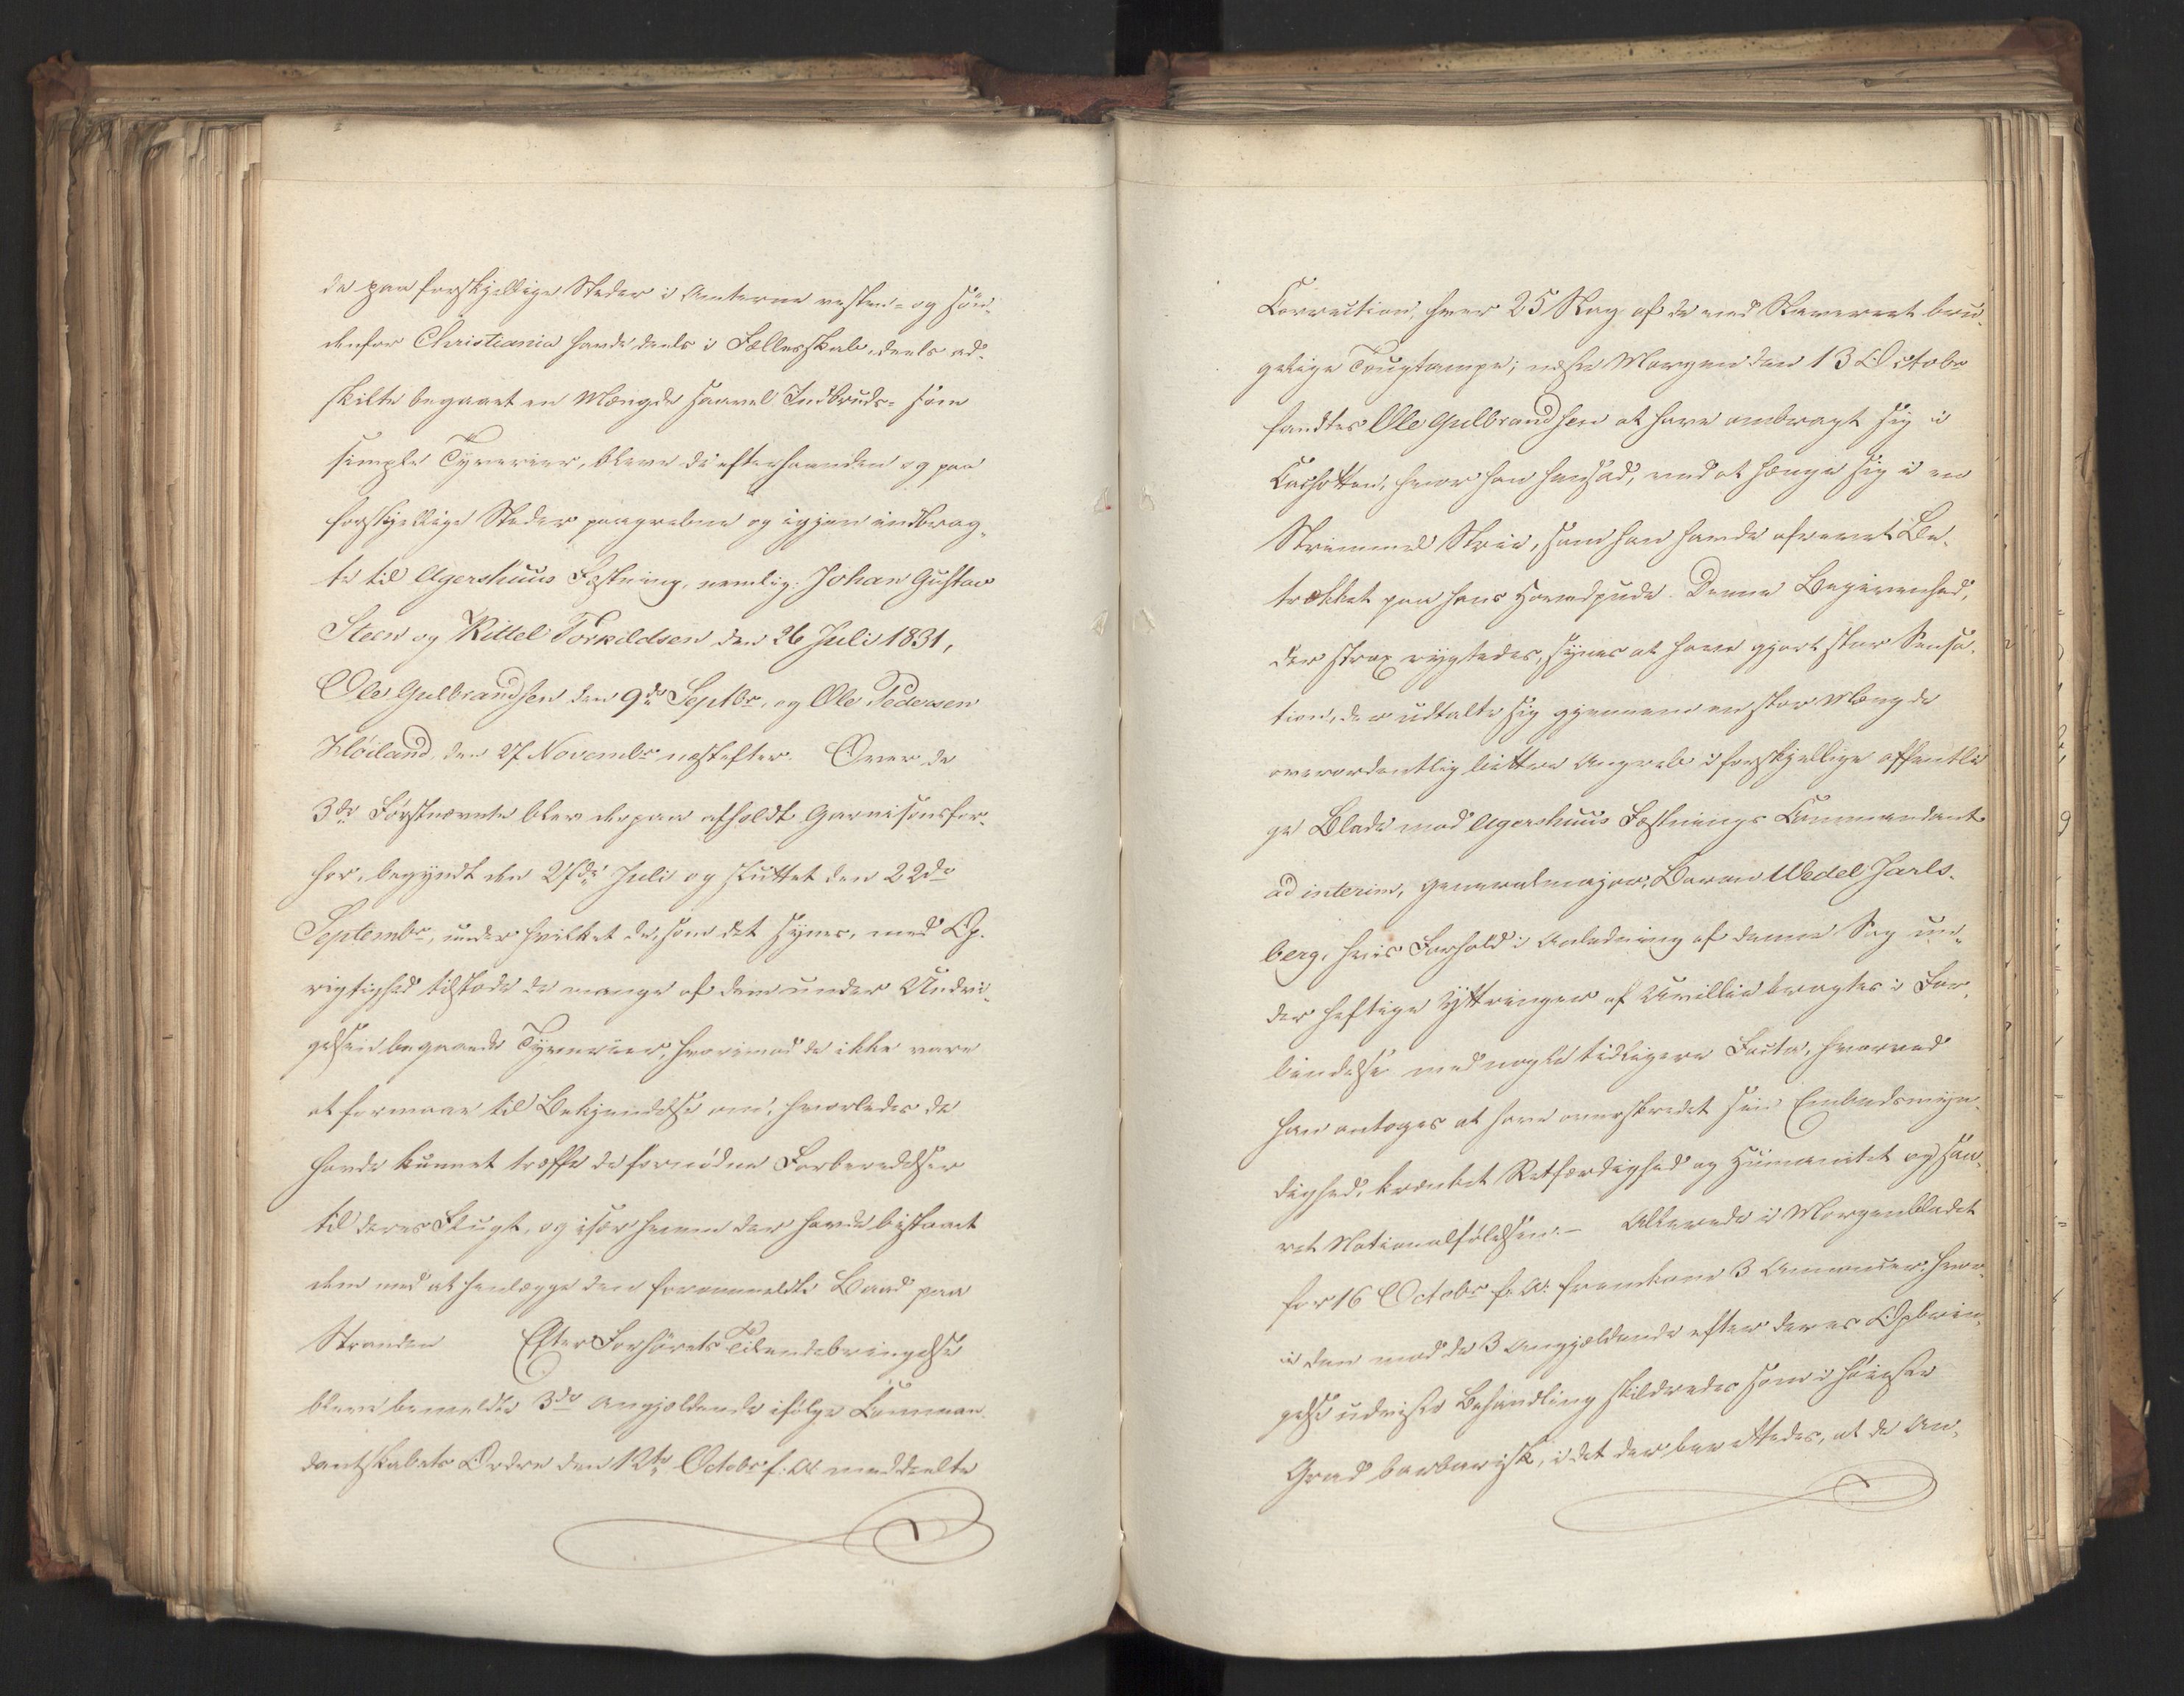 de paa forskjellige Steder i Amterne vesten- og søn-
denfor Christiania havde deels i Fællesskab, deels ad-
skilte begaaet en Mængde saavel Indbruds- som
simple Tyverier, bleve de efterhaanden og paa
forskjellige Steder paagrebne og igjen indbrag-
te til Agershuus Fæstning, nemlig: Johan Gustav
Steen og Kittel Torkildsen den 26 Juli 1831,
Ole Gulbrandsen den 9de Septbr, og Ole Pedersen
Høiland den 27 Novembr næstefter. Over de
3de Førstnævnte blev derpaa afholdt Garnisonsfor-
hør, begyndt den 27de Juli og sluttet den 22de
Septembr, under hvilket de, som det synes, med Op-
rigtighed tilstode de mange af dem under Undvi-
gelsen begaaede Tyverier, hvorimod de ikke vare
at formaae til Bekjendelse om, hvorledes de
havde kunnet træffe de fornødne Forberedelser
til deres Flugt, og især hvem der havde bistaaet
dem med at henlægge den forommeldte Baad paa
Stranden Efter Forhørets Tilendebringelse
bleve bemeldte 3de Angjældende ifølge Comman-
dantskabets Ordre den 12te Octobr f. A. meddeelte
Correction, hver 25 Slag af de ved Slaveriet bru-
gelige Tougtampe; næste Morgen den 13 Octobr
fandtes Ole Gulbrandsen at have ombragt sig i
Cachotten, hvor han hensad, ved at hænge sig i en
Strimmel Strie, som han havde afrevet Be-
trækket paa hans Hovedpude. Denne Begivenhed,
der strax rygtedes, synes at have gjort stor Sensa-
tion, der udtalte sig gjennem en stor Mængde
overordentlig bittre Angreb i forskjellige offentli-
ge Blade mod Agershuus Fæstnings Commandant
ad interim, Generalmajor, Baron Wedel Jarls-
berg, hvis Forhold i Anledning af denne Sag un-
der heftige Yttringer af Uvillie bragtes i For-
bindelse med nogle tidligere Facta, hvorved
han antoges at have overskredet sin Embedsmyn-
dighed, krænket Retfærdighed og Humanitet og saa-
ret Nationalfølelsen. - Allerede i Morgenbladet
for 16 Octobr f. A. fremkom 3 Annoncer, hvor-
i den mod de 3 Angjældende efter deres Opbrin-
gelse udviste Behandling skildredes som i høieste
Grad barbarisk, i det der berettedes, at de An-